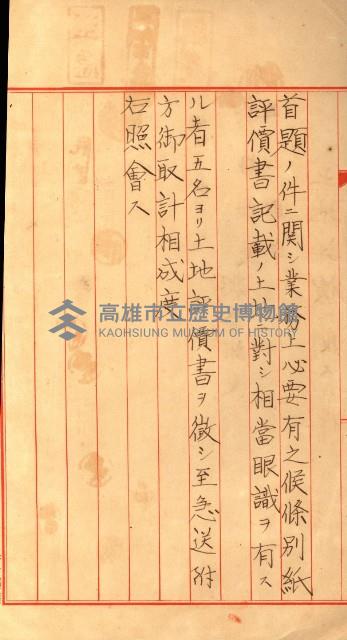 首題ノ件ニ関シ業務上必要有之候條別紙
評價書記載ノ土地ニ對シ相當眼識ヲ有ス
ル者五名ヨリ土地評價書ヲ徴シ至急送附
方御取計相成度
右照會ス
高雄市立歷史博物館
KAOHSIUNG MUSEUM OF HISTORY